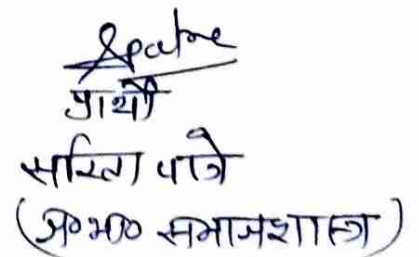 Spatre
प्रार्थी
सरिता पात्रे
(अ०भ० समाजशास्त्र)